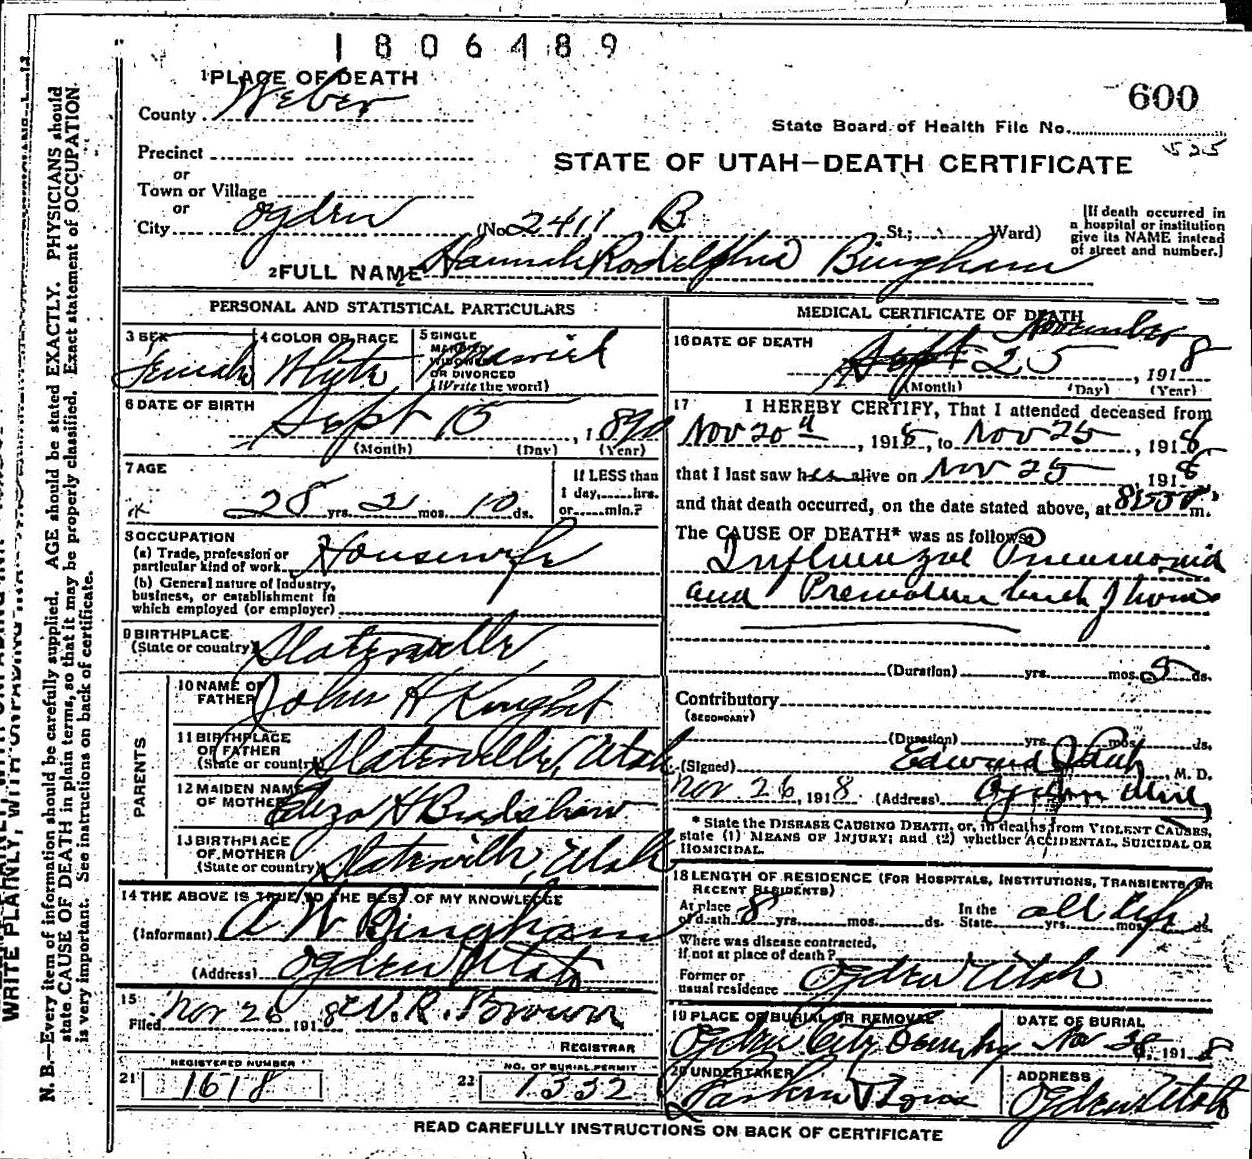 1806489
1 PLACE OF DEATH
County Weber
600
State Board of Health File No.
525
Precinct
or
Town or Village
or
City Ogden (No 2411 B. St.; Ward)
STATE OF UTAH—DEATH CERTIFICATE
[If death occurred in
a hospital or institution
give its NAME instead
of street and number.]
2 FULL NAME Hannah Rodelphia Bingham
PERSONAL AND STATISTICAL PARTICULARS
3 SEX Female
4 COLOR OR RACE White
5 SINGLE
MARRIED
WIDOWED
OR DIVORCED
(Write the word)
Married
6 DATE OF BIRTH
Sept 15, 1890
(Month) (Day) (Year)
7 AGE
28 yrs. 2 mos. 10 ds.
If LESS than
1 day,......hrs.
or......min.?
8 OCCUPATION
(a) Trade, profession or
particular kind of work Housewife
(b) General nature of Industry,
business, or establishment in
which employed (or employer)
9 BIRTHPLACE
(State or country) Slaterville
PARENTS
10 NAME OF
FATHER John H Knight
11 BIRTHPLACE
OF FATHER
(State or country) Slaterville, Utah
12 MAIDEN NAME
OF MOTHER Eliza H Bradshaw
13 BIRTHPLACE
OF MOTHER
(State or country) Slaterville, Utah
14 THE ABOVE IS TRUE TO THE BEST OF MY KNOWLEDGE
(Informant) A W Bingham
(Address) Ogden Utah
15
Filed Nov 26 1918 W. R. Brown
REGISTRAR
21 REGISTERED NUMBER
1618
22 NO. OF BURIAL PERMIT
1332
MEDICAL CERTIFICATE OF DEATH
November
16 DATE OF DEATH
Sept 25, 1918
(Month) (Day) (Year)
17 I HEREBY CERTIFY, That I attended deceased from
Nov 20, 1918, to Nov 25, 1918
that I last saw her alive on Nov 25 1918
and that death occurred, on the date stated above, at 8:55 P. m.
The CAUSE OF DEATH* was as follows:
Influenzal Pneumonia
and Premature
(Duration) yrs. mos. 5 ds.
Contributory
(SECONDARY)
(Duration) yrs. mos. ds.
(Signed) Edward M. D.
Nov 26, 1918 (Address) Ogden Utah
* State the DISEASE CAUSING DEATH, or, in deaths from VIOLENT CAUSES,
state (1) MEANS OF INJURY; and (2) whether ACCIDENTAL, SUICIDAL OR
HOMICIDAL.
18 LENGTH OF RESIDENCE (FOR HOSPITALS, INSTITUTIONS, TRANSIENTS, OR
RECENT RESIDENTS)
At place
of death 8 yrs. mos. ds.
In the
State yrs. mos. ds.
all life
Where was disease contracted,
if not at place of death?
Former or
usual residence Ogden Utah
19 PLACE OF BURIAL OR REMOVAL
Ogden City Cemetery
DATE OF BURIAL
Nov 28 1918
20 UNDERTAKER
Larkin
ADDRESS
Ogden Utah
READ CAREFULLY INSTRUCTIONS ON BACK OF CERTIFICATE
N. B.—Every item of information should be carefully supplied. AGE should be stated EXACTLY. PHYSICIANS should
state CAUSE OF DEATH in plain terms, so that it may be properly classified. Exact statement of OCCUPATION
is very important. See instructions on back of certificate.